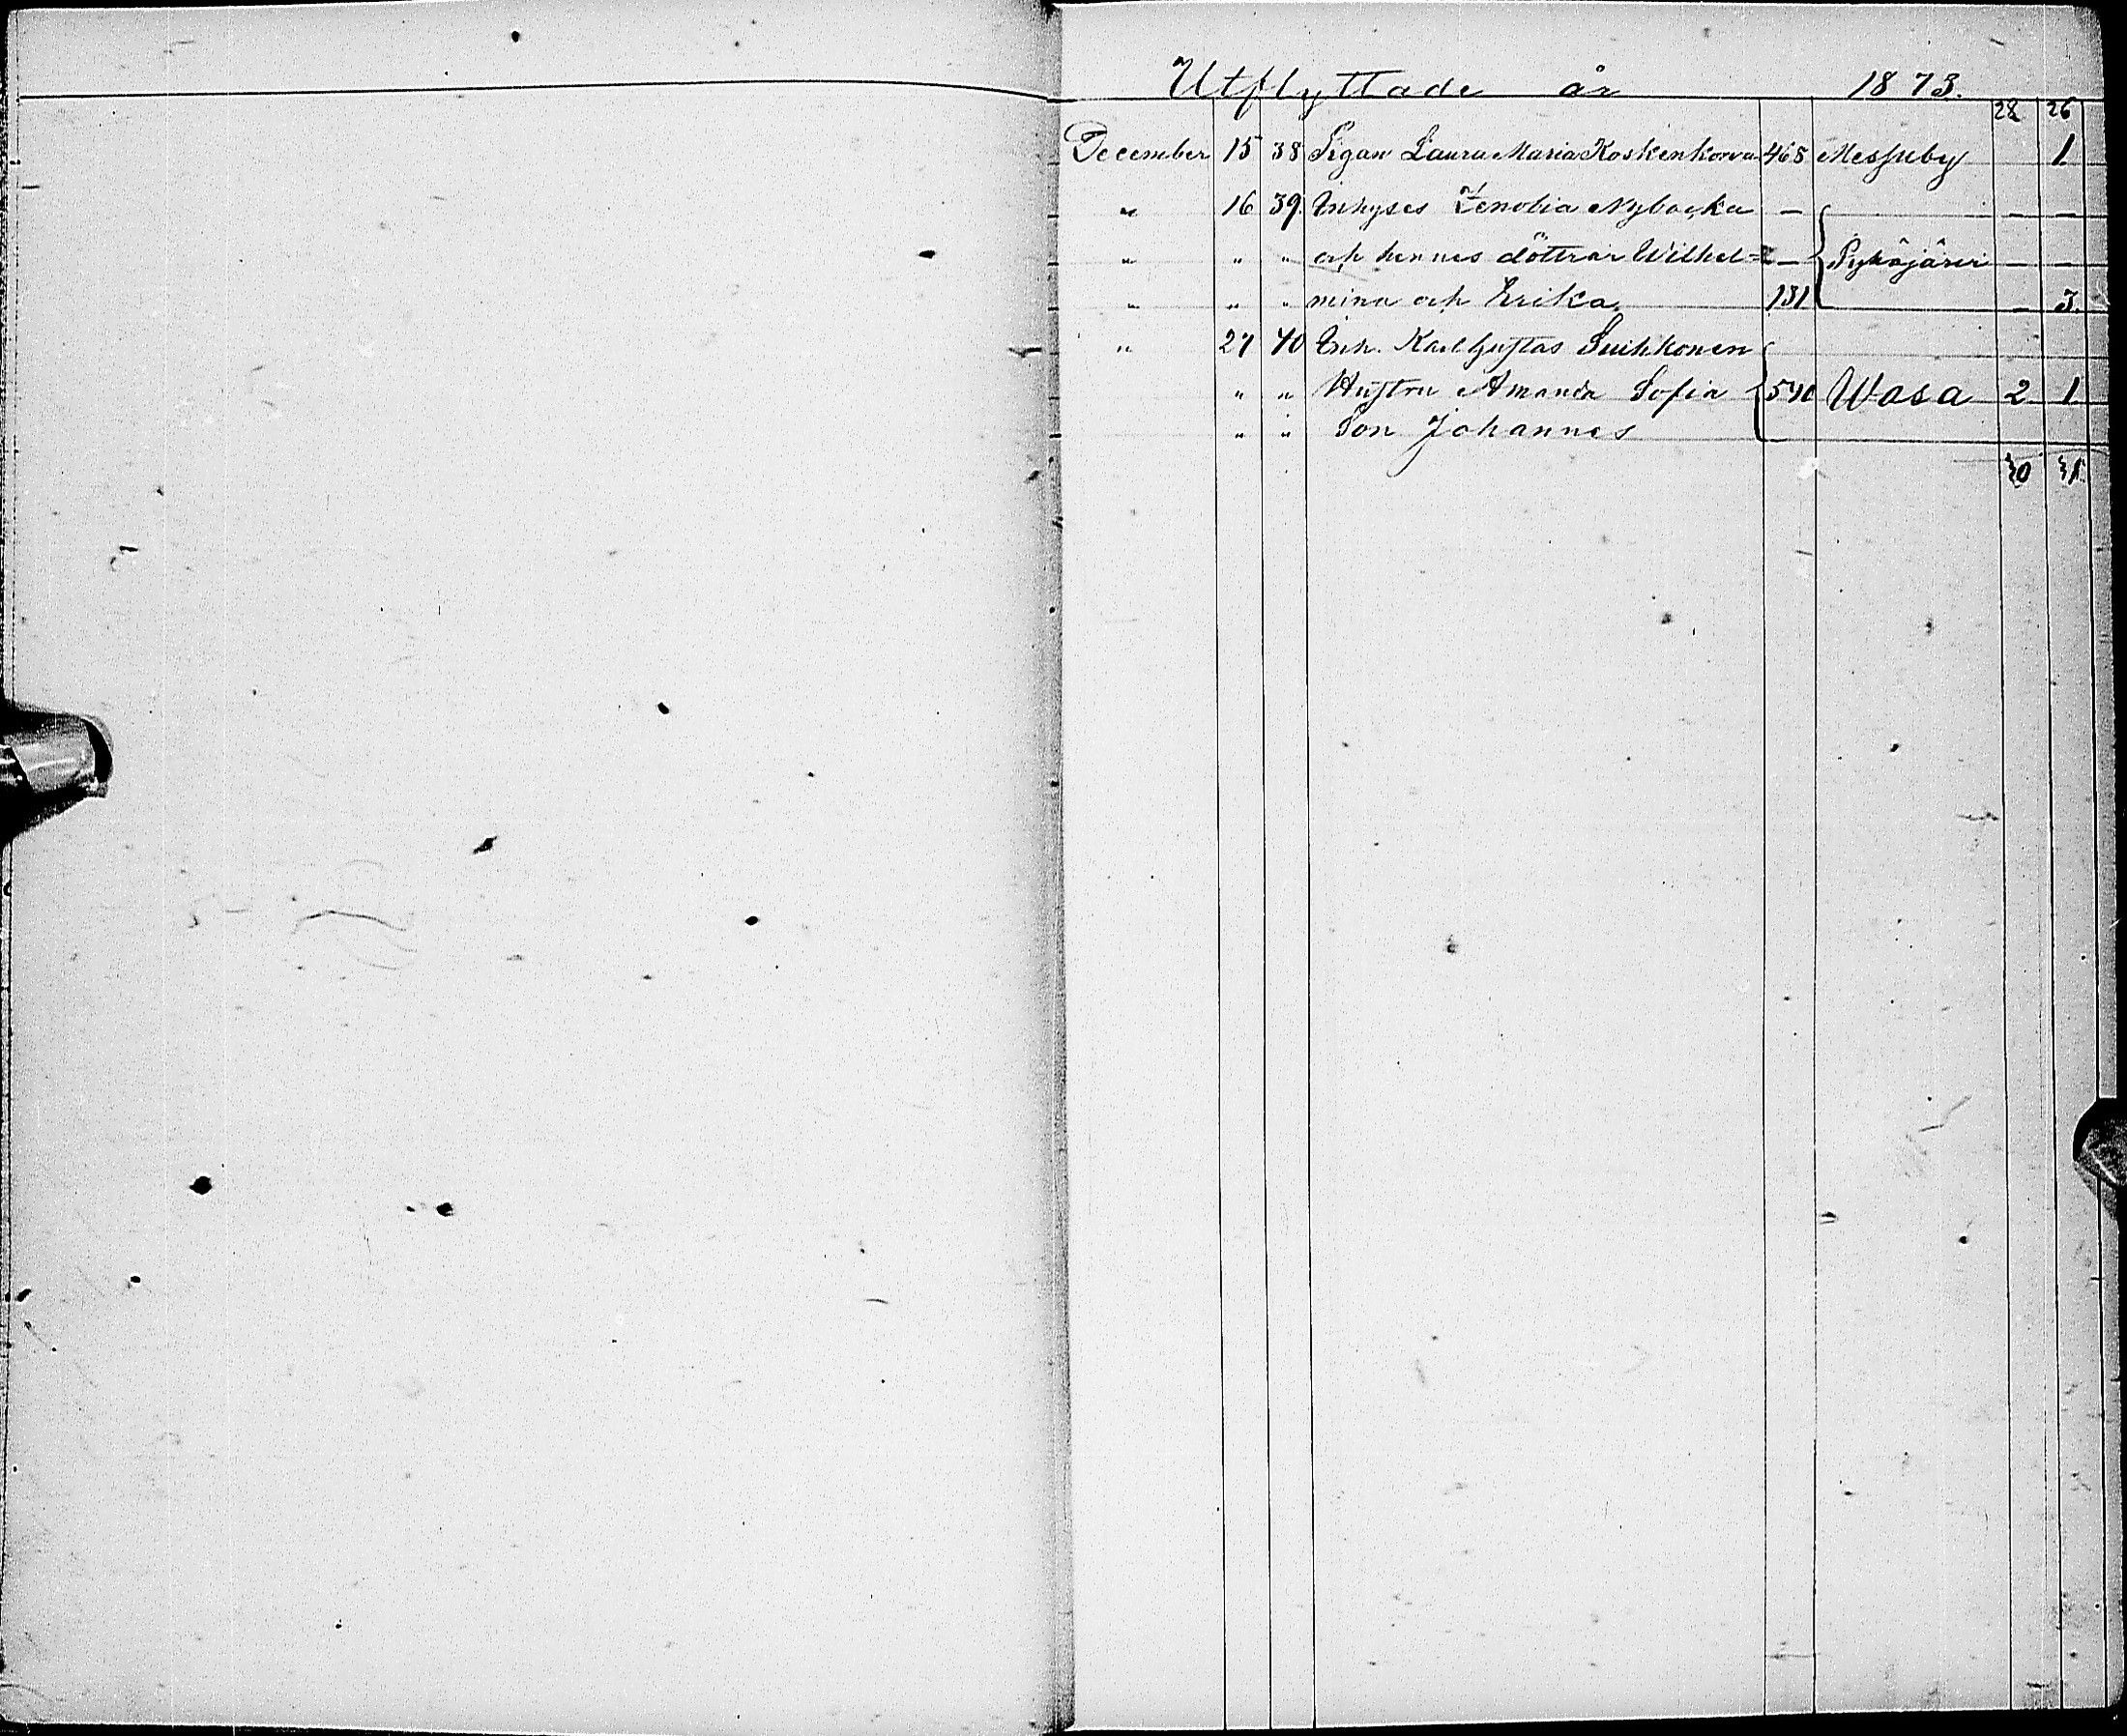 Utflyttade år 1873.
28 26
December 15 38 Pigan Laura Maria Koskenkorva 468 Messuby 1.
" 16 39. Inhyses Zenobia Nybacka — — —
" " " och hennes döttrar Wilhel= — Pyhäjärvi — —
" " " mina och Erika. 131 — 3.
" 27 40 Inh. Karl Gustaf Suihkonen
" " Hustru Amanda Sofia 540 Wasa 2 1
" " Son Johannes
30 31.